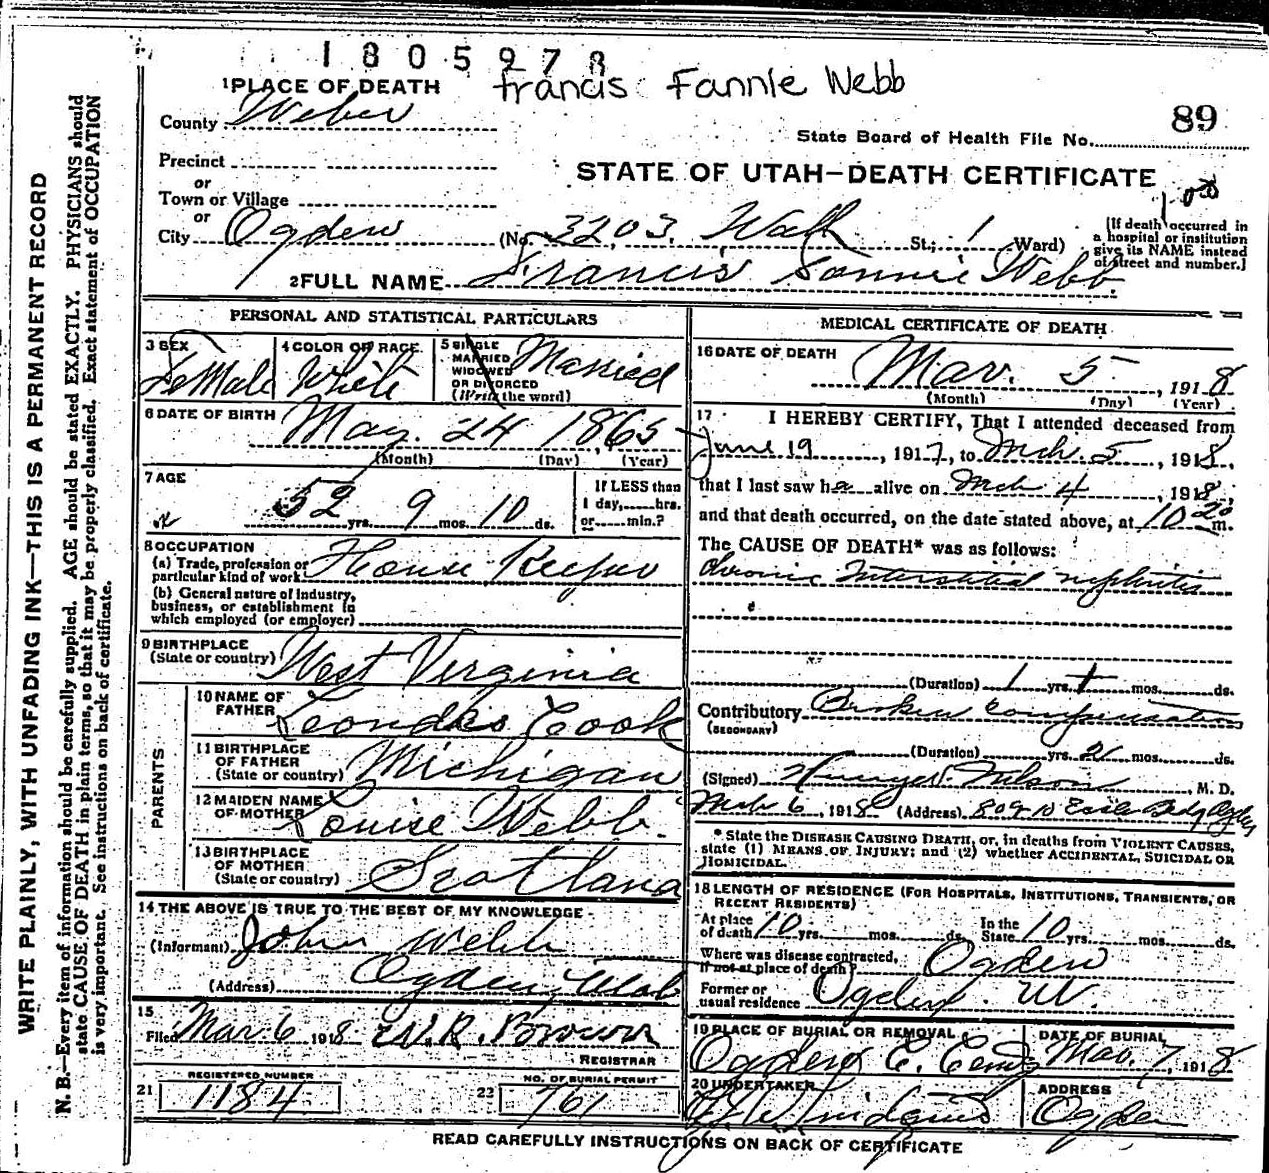 1805978
Francis Fannie Webb
1 PLACE OF DEATH
County Weber
89
State Board of Health File No.
Precinct
or
STATE OF UTAH—DEATH CERTIFICATE
Town or Village
or
City Ogden (No. 3203 Wall St.; 1 Ward)
[If death occurred in
a hospital or institution
give its NAME instead
of street and number.]
2 FULL NAME Francis Fannie Webb.
PERSONAL AND STATISTICAL PARTICULARS
3 SEX FeMale
4 COLOR OR RACE White
5 SINGLE
MARRIED
WIDOWED
OR DIVORCED
(Write the word)
Married
6 DATE OF BIRTH May. 24, 1865
(Month) (Day) (Year)
7 AGE
52 yrs. 9 mos. 10 ds.
If LESS than
1 day, hrs.
or min.?
8 OCCUPATION
(a) Trade, profession or
particular kind of work House Keeper
(b) General nature of industry,
business, or establishment in
which employed (or employer)
9 BIRTHPLACE
(State or country) West Virginia
PARENTS
10 NAME OF
FATHER Cook
11 BIRTHPLACE
OF FATHER
(State or country) Michigan
12 MAIDEN NAME
OF MOTHER Louise Webb.
13 BIRTHPLACE
OF MOTHER
(State or country) Scotland
14 THE ABOVE IS TRUE TO THE BEST OF MY KNOWLEDGE
(Informant) John Webb
(Address) Ogden, Utah
15
Filed Mar 6 1918
REGISTRAR
REGISTERED NUMBER
21 1184
NO. OF BURIAL PERMIT
22 761
MEDICAL CERTIFICATE OF DEATH
16 DATE OF DEATH
Mar. 5, 1918
(Month) (Day) (Year)
17 I HEREBY CERTIFY, That I attended deceased from
June 19, 1917, to Mch. 5, 1918,
that I last saw h alive on Mch 4, 1918,
and that death occurred, on the date stated above, at 10 20 m.
The CAUSE OF DEATH* was as follows:
Chronic Interstitial nephritis
(Duration) 1 yrs. mos. ds.
Contributory Broken Compensation
(SECONDARY)
(Duration) yrs. 2 mos. ds.
(Signed) M. D.
Mch 6, 1918 (Address) Ogden
*State the DISEASE CAUSING DEATH, or, in deaths from VIOLENT CAUSES,
state (1) MEANS OF INJURY; and (2) whether ACCIDENTAL, SUICIDAL OR
HOMICIDAL.
18 LENGTH OF RESIDENCE (FOR HOSPITALS, INSTITUTIONS, TRANSIENTS, OR
RECENT RESIDENTS)
At place
of death 10 yrs. mos. ds.
In the
State 10 yrs. mos. ds.
Where was disease contracted,
if not at place of death? Ogden
Former or
usual residence Ogden. Ut.
19 PLACE OF BURIAL OR REMOVAL
Ogden C. Cemty
DATE OF BURIAL
Mar. 7, 1918
20 UNDERTAKER
ADDRESS
Ogden
READ CAREFULLY INSTRUCTIONS ON BACK OF CERTIFICATE
WRITE PLAINLY, WITH UNFADING INK—THIS IS A PERMANENT RECORD
N. B.—Every item of information should be carefully supplied. AGE should be stated EXACTLY. PHYSICIANS should
state CAUSE OF DEATH in plain terms, so that it may be properly classified. Exact statement of OCCUPATION
is very important. See instructions on back of certificate.